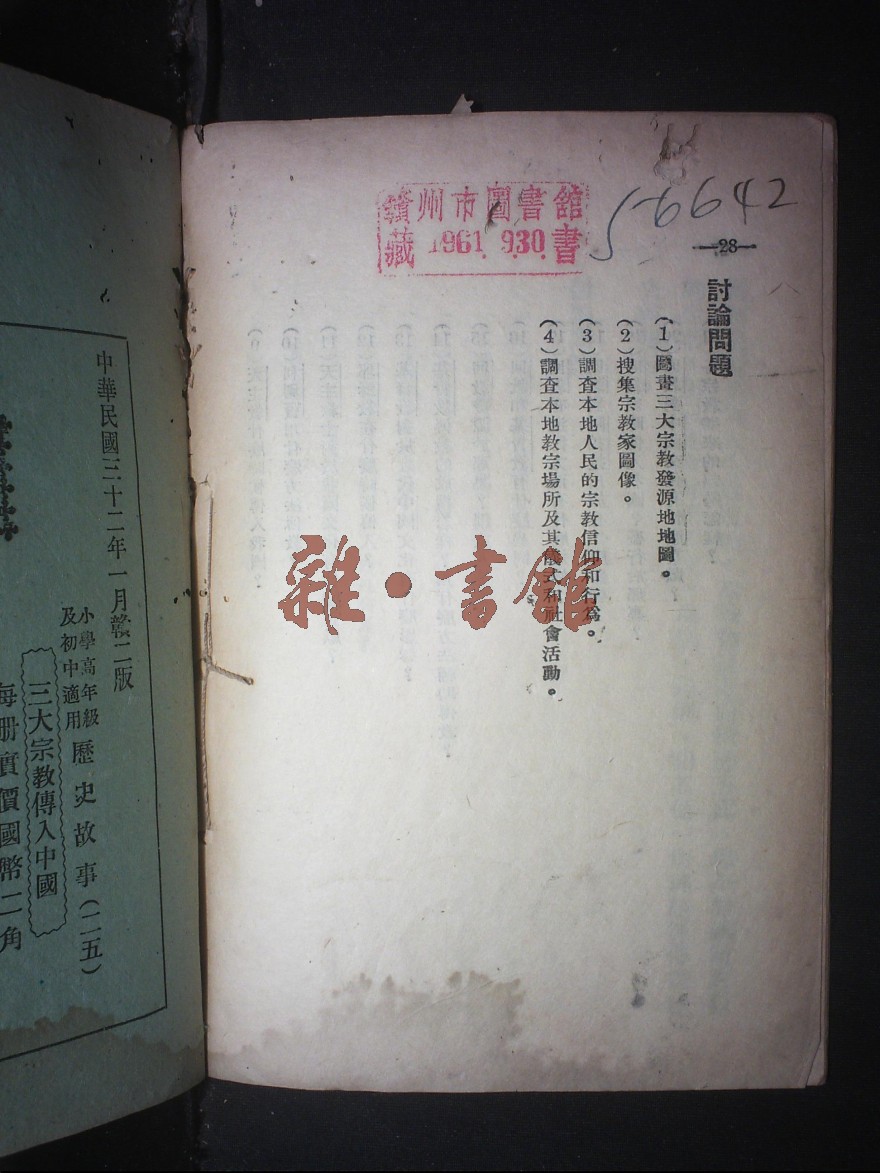 贛州市圖書館
藏 1961.9.30. 書
5-6642
—28—
討論問題
(1)圖畫三大宗教發源地地圖。
(2)搜集宗教家圖像。
(3)調查本地人民的宗教信仰和行爲。
(4)調查本地教宗場所及其儀式和社會活動。
雜·書館
中華民國三十二年一月贛二版
小學高年級
及初中適用
歷史故事(二五)
三大宗教傳入中國
每册實價國幣二角